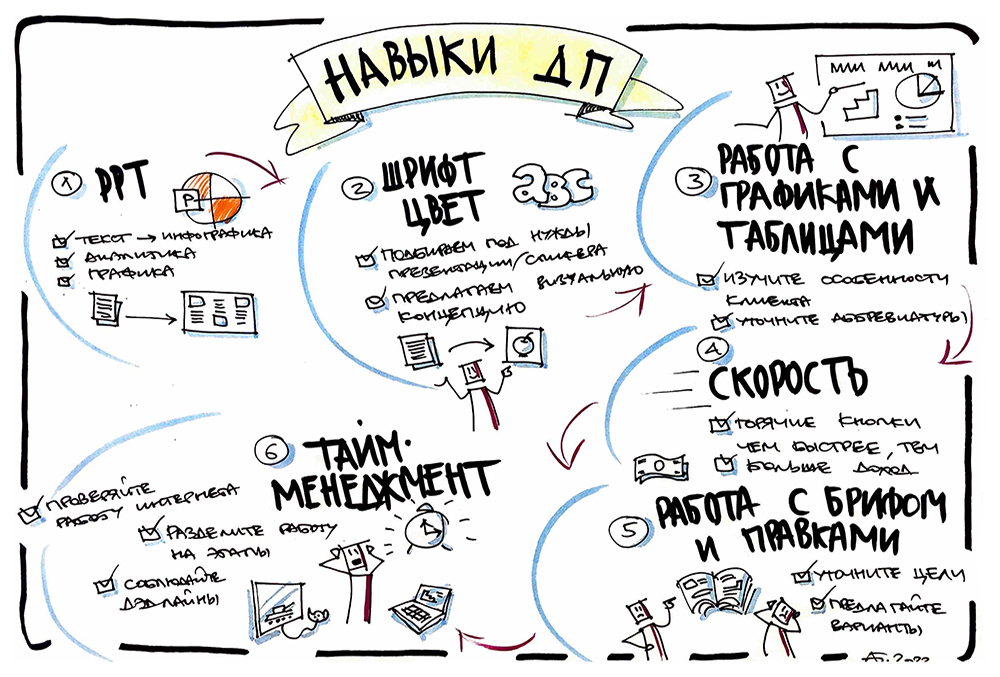 НАВЫКИ ДП
1 PPT
P
ТЕКСТ → ИНФОГРАФИКА
АНАЛИТИКА
ГРАФИКА
2 ШРИФТ
ЦВЕТ
abc
ПОДБИРАЕМ ПОД НУЖДЫ
ПРЕЗЕНТАЦИИ/СПИКЕРА
ПРЕДЛАГАЕМ ВИЗУАЛЬНУЮ
КОНЦЕПЦИЮ
3 РАБОТА С
ГРАФИКАМИ И
ТАБЛИЦАМИ
ИЗУЧИТЕ ОСОБЕННОСТИ
КЛИЕНТА
УТОЧНИТЕ АББРЕВИАТУРЫ
4
СКОРОСТЬ
ГОРЯЧИЕ КНОПКИ
ЧЕМ БЫСТРЕЕ, ТЕМ
БОЛЬШЕ ДОХОД
5 РАБОТА С БРИФОМ
И ПРАВКАМИ
УТОЧНИТЕ ЦЕЛИ
ПРЕДЛАГАЙТЕ
ВАРИАНТЫ
6 ТАЙМ-
МЕНЕДЖМЕНТ
ПРОВЕРЯЙТЕ
РАБОТУ ИНТЕРНЕТА
РАЗДЕЛИТЕ РАБОТУ
НА ЭТАПЫ
СОБЛЮДАЙТЕ
ДЭДЛАЙНЫ